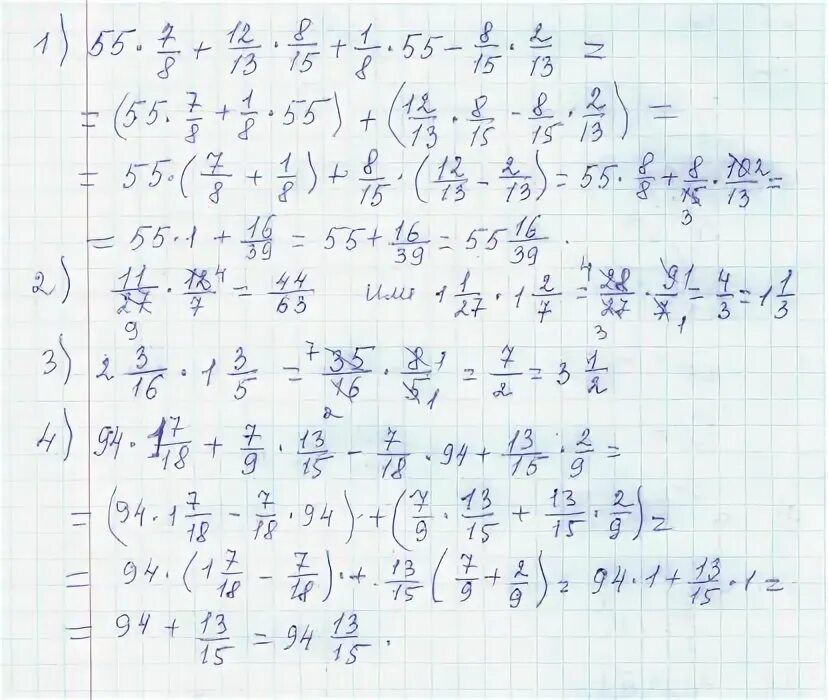 1) 55 · 7/8 + 12/13 · 8/15 + 1/8 · 55 − 8/15 · 2/13 =
= (55 · 7/8 + 1/8 · 55) + (12/13 · 8/15 − 8/15 · 2/13) =
= 55 · (7/8 + 1/8) + 8/15 · (12/13 − 2/13) = 55 · 8/8 + 8/15 3 · 10 2/13 =
= 55 · 1 + 16/39 = 55 + 16/39 = 55 16/39 .
2) 11/27 9 · 12 4/7 = 44/63 или 1 1/27 · 1 2/7 = 4 28/27 3 · 9 1/7 1 = 4/3 = 1 1/3
3) 2 3/16 · 1 3/5 = 7 35/16 2 · 8 1/5 1 = 7/2 = 3 1/2
4) 94 · 1 7/18 + 7/9 · 13/15 − 7/18 · 94 + 13/15 · 2/9 =
= (94 · 1 7/18 − 7/18 · 94) + (7/9 · 13/15 + 13/15 · 2/9) =
= 94 · (1 7/18 − 7/18) + 13/15 (7/9 + 2/9) = 94 · 1 + 13/15 · 1 =
= 94 + 13/15 = 94 13/15 .